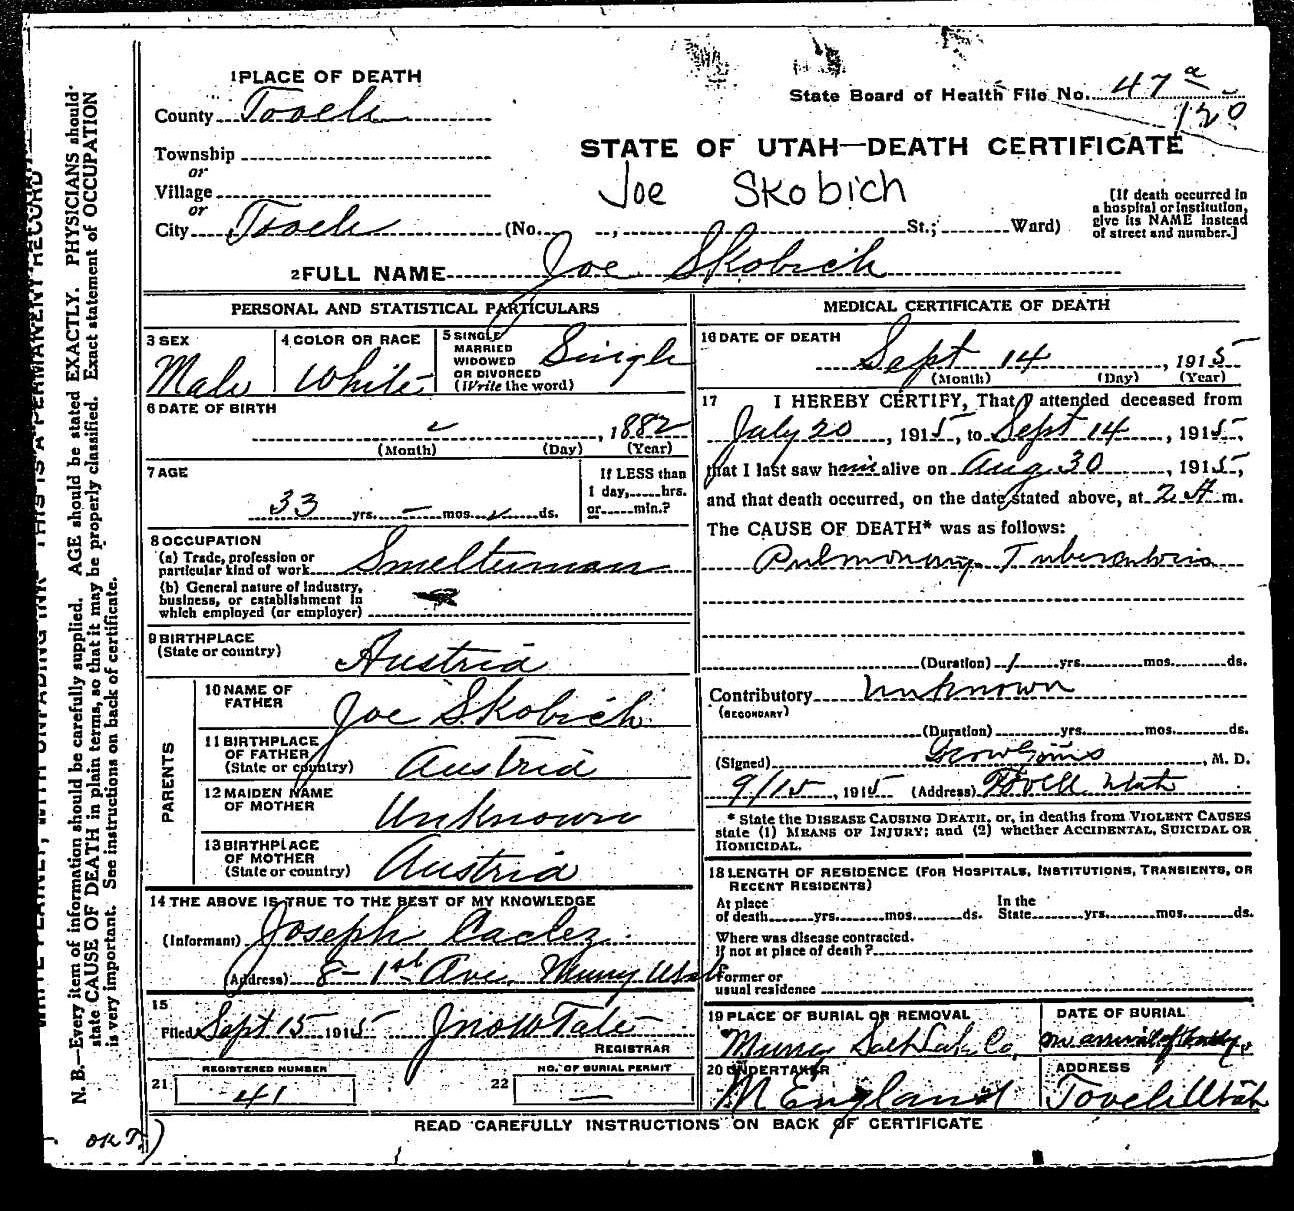 1 PLACE OF DEATH
County Tooele
Township
or
Village
or
City Tooele (No. , St.; Ward)
State Board of Health File No. 47 a
120
STATE OF UTAH—DEATH CERTIFICATE
Joe Skobich
[If death occurred in
a hospital or institution,
give its NAME instead
of street and number.]
2 FULL NAME Joe Skobich
PERSONAL AND STATISTICAL PARTICULARS
3 SEX
Male
4 COLOR OR RACE
White
5 SINGLE
MARRIED
WIDOWED
OR DIVORCED
(Write the word)
Single
6 DATE OF BIRTH
, 1882
(Month) (Day) (Year)
7 AGE
33 yrs. — mos. ds.
If LESS than
1 day, hrs.
or min.?
8 OCCUPATION
(a) Trade, profession or
particular kind of work Smelterman
(b) General nature of industry,
business, or establishment in
which employed (or employer)
9 BIRTHPLACE
(State or country) Austria
PARENTS
10 NAME OF
FATHER Joe Skobich
11 BIRTHPLACE
OF FATHER
(State or country) Austria
12 MAIDEN NAME
OF MOTHER Unknown
13 BIRTHPLACE
OF MOTHER
(State or country) Austria
14 THE ABOVE IS TRUE TO THE BEST OF MY KNOWLEDGE
(Informant) Joseph
(Address) 8 - 1st Ave. Murry Utah
15
Filed Sept 15 1915 Jno W Tate
REGISTRAR
21 REGISTERED NUMBER
41
22 NO. OF BURIAL PERMIT
—
MEDICAL CERTIFICATE OF DEATH
16 DATE OF DEATH
Sept 14, 1915
(Month) (Day) (Year)
17 I HEREBY CERTIFY, That I attended deceased from
July 20, 1915, to Sept 14, 1915,
that I last saw him alive on Aug 30, 1915,
and that death occurred, on the date stated above, at 2 A m.
The CAUSE OF DEATH* was as follows:
Pulmonary Tuberculosis
(Duration) 1 yrs. mos. ds.
Contributory Unknown
(SECONDARY)
(Duration) yrs. mos. ds.
(Signed) , M. D.
9/15, 1915 (Address) Tooele Utah
* State the DISEASE CAUSING DEATH, or, in deaths from VIOLENT CAUSES
state (1) MEANS OF INJURY; and (2) whether ACCIDENTAL, SUICIDAL OR
HOMICIDAL.
18 LENGTH OF RESIDENCE (FOR HOSPITALS, INSTITUTIONS, TRANSIENTS, OR
RECENT RESIDENTS)
At place
of death yrs. mos. ds.
In the
State yrs. mos. ds.
Where was disease contracted.
if not at place of death?
Former or
usual residence
19 PLACE OF BURIAL OR REMOVAL
Murry Salt Lake Co.
DATE OF BURIAL
on arrival of body
20 UNDERTAKER
M England
ADDRESS
Tooele Utah
READ CAREFULLY INSTRUCTIONS ON BACK OF CERTIFICATE
WRITE PLAINLY, WITH UNFADING INK—THIS IS A PERMANENT RECORD
N. B.—Every item of information should be carefully supplied. AGE should be stated EXACTLY. PHYSICIANS should
state CAUSE OF DEATH in plain terms, so that it may be properly classified. Exact statement of OCCUPATION
is very important. See instructions on back of certificate.